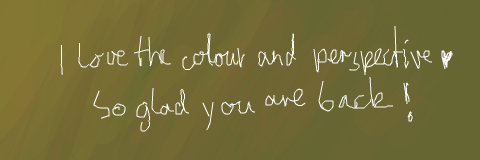 I love the colour and perspective ♥
So glad you are back!